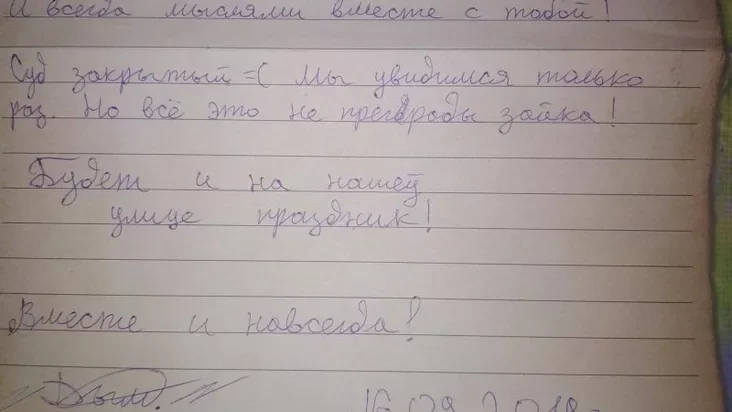 И всегда мыслями вместе с тобой!
Суд закрытый =( Мы увидимся только
раз. Но всё это не преграды зайка!
Будет и на нашей
улице праздник!
Вместе и навсегда!